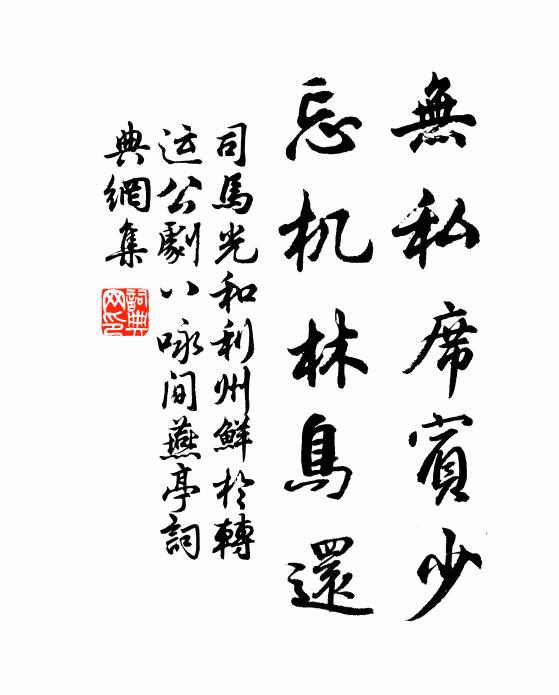 無私席賓少
忘机林鳥還
司馬光和利州鮮於轉
运公劇八咏间燕亭詞
典網集
詞典
网印